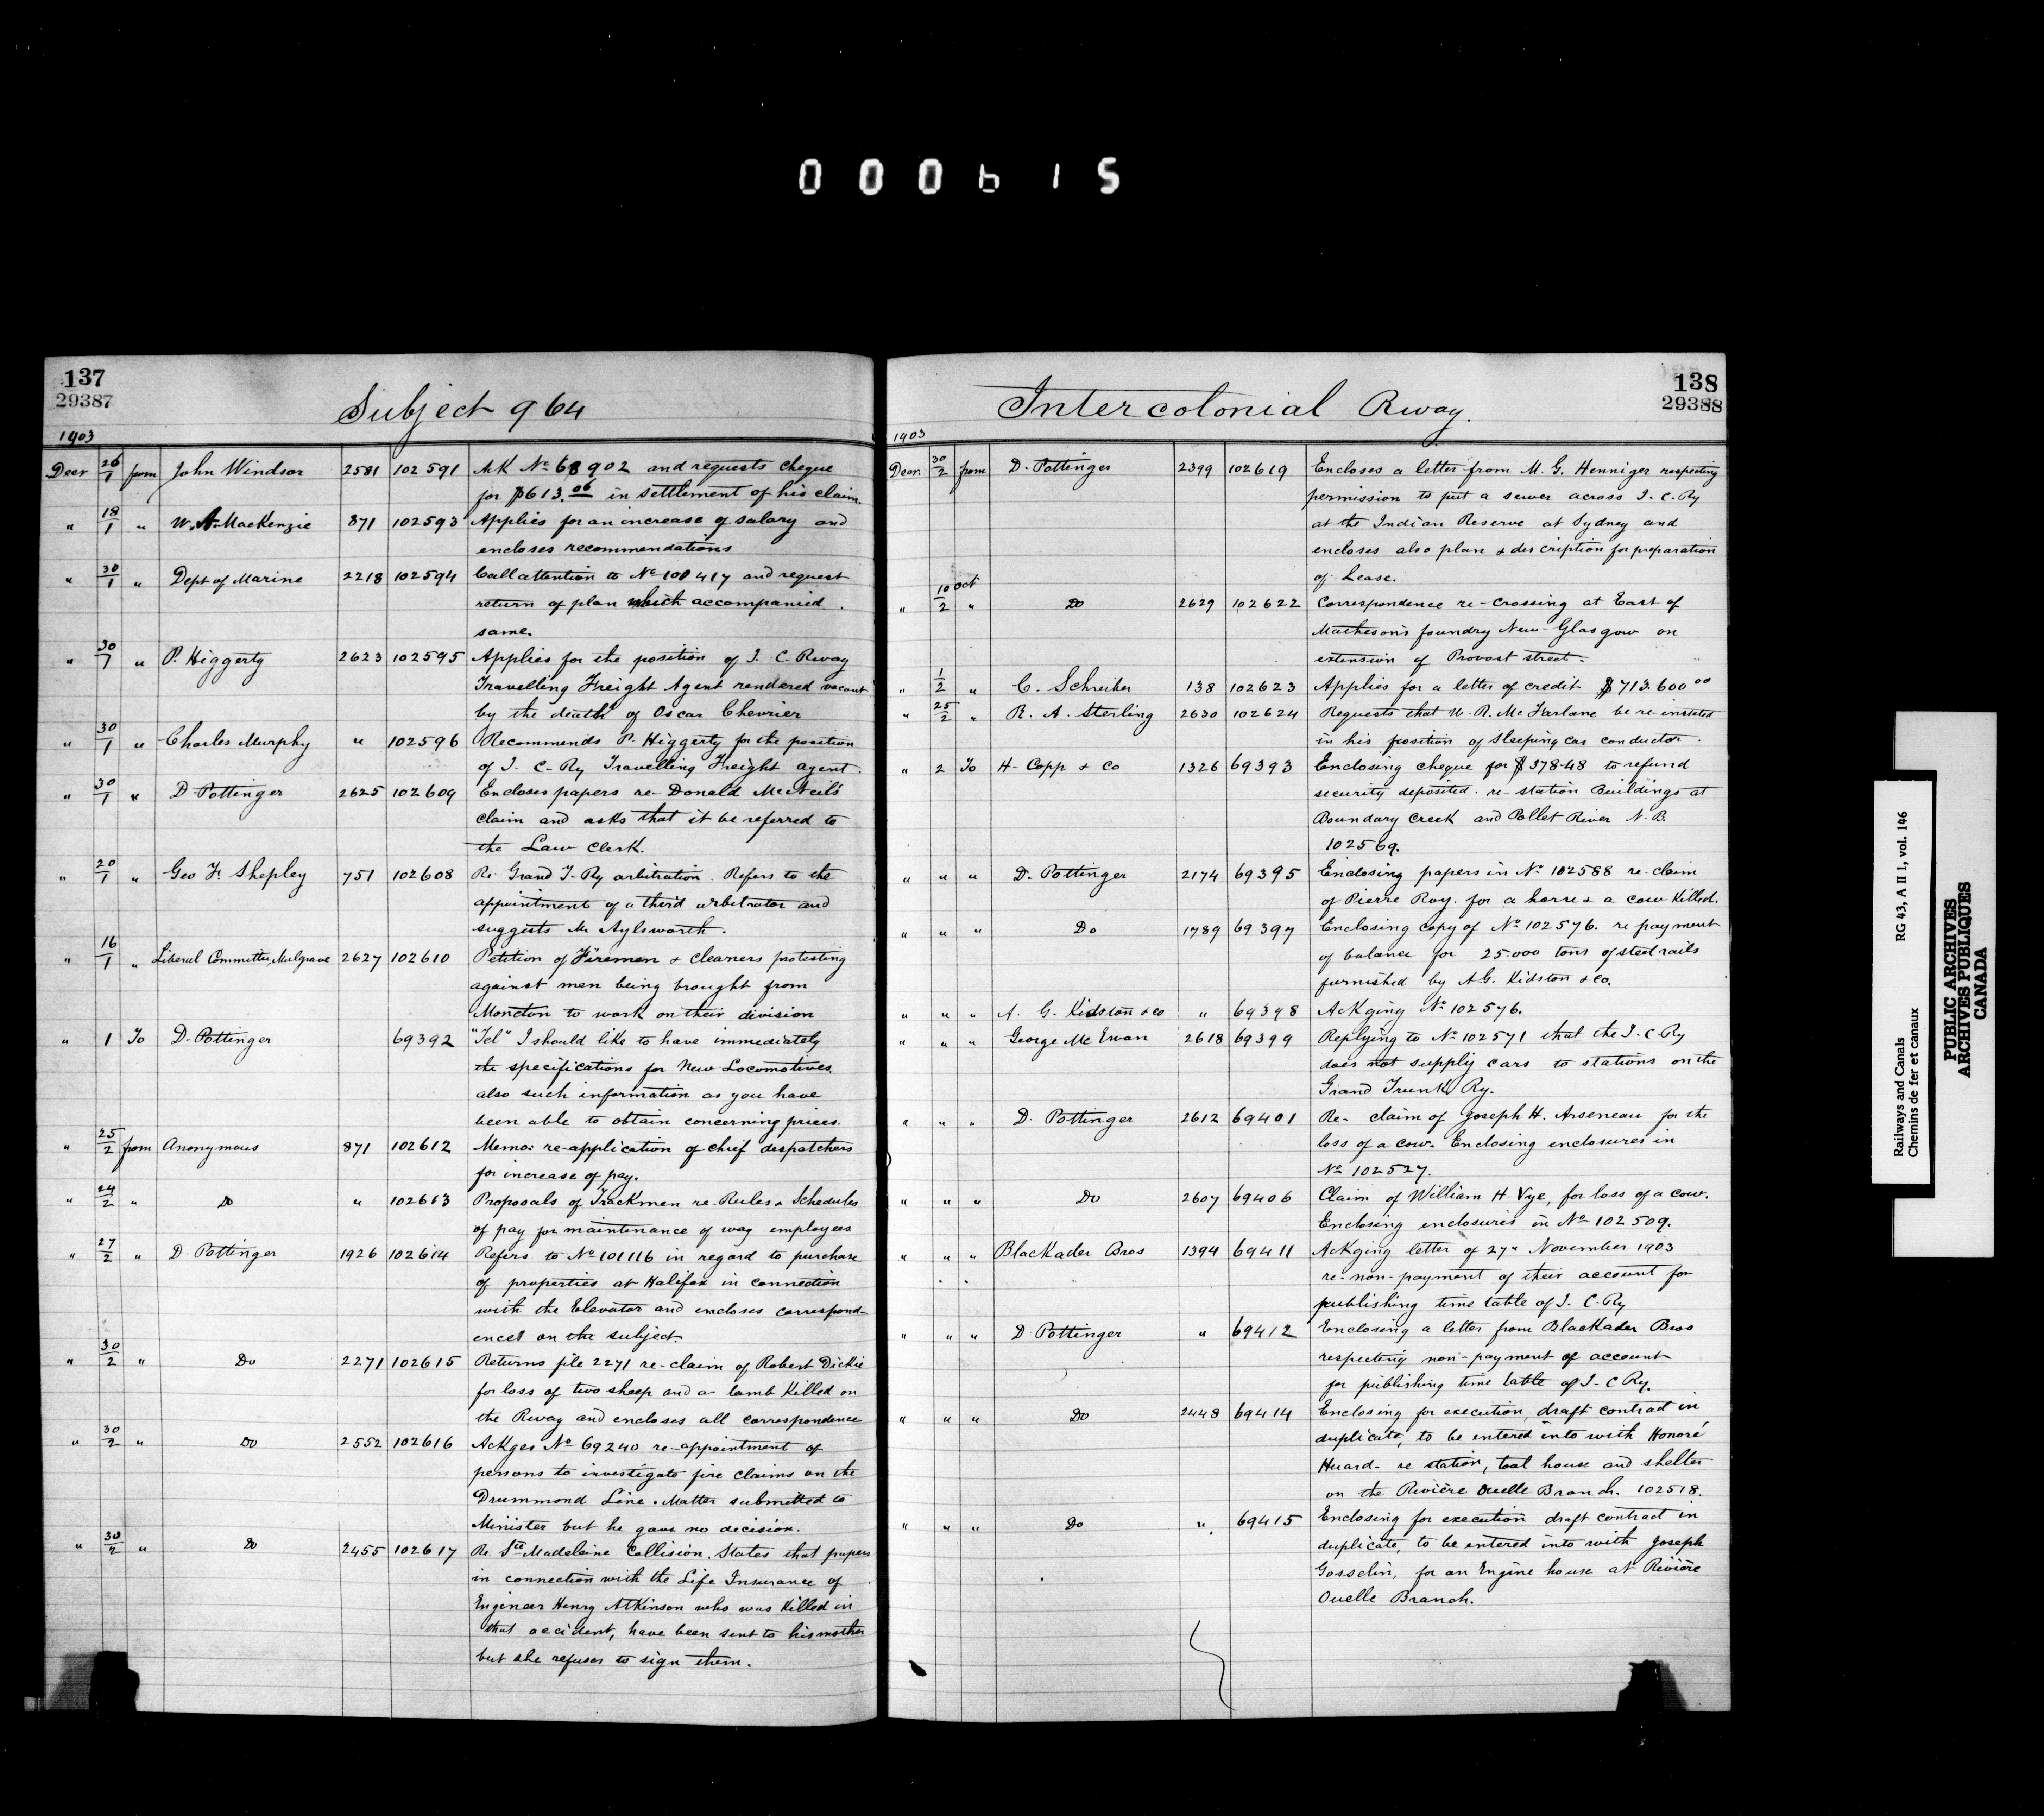 000615
137
29387
Subject 964
1903
Decr 26/1 from John Windsor 2581 102591 Ack No 68902 and requests cheque
for $613.06 in settlement of his claim.
" 18/1 " W. A. MacKenzie 871 102593 Applies for an increase of salary and
encloses recommendations
" 30/1 " Dept of Marine 2218 102594 Call attention to No 101417 and request
return of plan which accompanied
same.
" 30/1 " P. Higgerty 2623 102595 Applies for the position of I. C. Rway
Travelling Freight Agent rendered vacant
by the death of Oscar Chevrier
" 30/1 " Charles Murphy " 102596 Recommends P. Higgerty for the position
of I. C. Ry Travelling Freight agent.
" 30/1 " D. Pottinger 2625 102609 Encloses papers re Donald McNeil's
claim and asks that it be referred to
the Law Clerk.
" 20/1 " Geo F. Shepley 751 102608 Re Grand T. Ry arbitration. Refers to the
appointment of a third arbitrator and
suggests Mr Aylsworth.
" 16/1 " Liberal Committee, Mulgrave 2627 102610 Petition of Firemen & cleaners protesting
against men being brought from
Moncton to work on their division
" 1 To D. Pottinger 69392 "Tel" I should like to have immediately
the specifications for New Locomotives.
also such information as you have
been able to obtain concerning prices.
" 25/2 from Anonymous 871 102612 Memo: re-application of chief despatchers
for increase of pay.
" 24/2 " Do " 102613 Proposals of Trackmen re-Rules & Schedules
of pay for maintenance of way employees
" 27/2 " D. Pottinger 1926 102614 Refers to No 101116 in regard to purchase
of properties at Halifax in connection
with the Elevator and encloses correspond-
ence on the subject.
" 30/2 " Do 2271 102615 Returns file 2271 re-claim of Robert Dickie
for loss of two sheep and a lamb killed on
the Rway and encloses all correspondence
" 30/2 " Do 2552 102616 Ackges No 69240 re-appointment of
persons to investigate fire claims on the
Drummond Line. Matter submitted to
Minister but he gave no decision.
" 30/2 " Do 2455 102617 Re. Ste Madeleine Collision. States that papers
in connection with the Life Insurance of
Engineer Henry Atkinson who was killed in
that accident, have been sent to his mother
but she refuses to sign them.
138
29388
Intercolonial Rway.
1903
Decr. 30/2 from D. Pottinger 2399 102619 Encloses a letter from M. G. Henniger respecting
permission to put a sewer across I. C. Ry
at the Indian Reserve at Sydney and
encloses also plan & description for preparation
of Lease.
" 10/2 Oct " Do 2629 102622 Correspondence re-crossing at East of
Matheson's foundry New-Glasgow on
extension of Provost street.
" 1/2 " C. Schreiber 138 102623 Applies for a letter of credit $713.600 00
" 25/2 " R. A. Sterling 2630 102624 Requests that W. R. McFarlane be re-instated
in his position of sleeping car conductor.
" 2 To H. Copp & Co 1326 69393 Enclosing cheque for $378.48 to refund
security deposited re-station Buildings at
Boundary Creek and Pollet River N.B.
102569.
" " " D. Pottinger 2174 69395 Enclosing papers in No 102588 re-claim
of Pierre Roy. for a horse & a cow killed.
" " " Do 1789 69397 Enclosing copy of No 102576. re payment
of balance for 25.000 tons of steel rails
furnished by A. G. Kidston & Co.
" " " A. G. Kidston & Co " 69398 Ackging No 102576.
" " " George McEwan 2618 69399 Replying to No 102571 that the I. C. Ry
does not supply cars to stations on the
Grand Trunk Ry.
" " " D. Pottinger 2612 69401 Re- claim of Joseph H. Arseneau for the
loss of a cow. Enclosing enclosures in
No 102527.
" " " Do 2607 69406 Claim of William H. Vye, for loss of a cow.
Enclosing enclosures in No 102509.
" " " Blackader Bros 1394 69411 Ackging letter of 27" November 1903
re-non-payment of their account for
publishing time table of I. C. Ry
" " " D. Pottinger " 69412 Enclosing a letter from Blackader Bros
respecting non-payment of account
for publishing time table of I. C Ry.
" " " Do 2448 69414 Enclosing for execution, draft contract in
duplicate, to be entered into with Honoré
Huard- re station, tool house and shelter
on the Rivière Ouelle Branch. 102518.
" " " Do " 69415 Enclosing for execution draft contract in
duplicate, to be entered into with Joseph
Gosselin, for an Engine house at Rivière
Ouelle Branch.
Railways and Canals RG 43, A II 1, vol. 146
Chemins de fer et canaux
PUBLIC ARCHIVES
ARCHIVES PUBLIQUES
CANADA